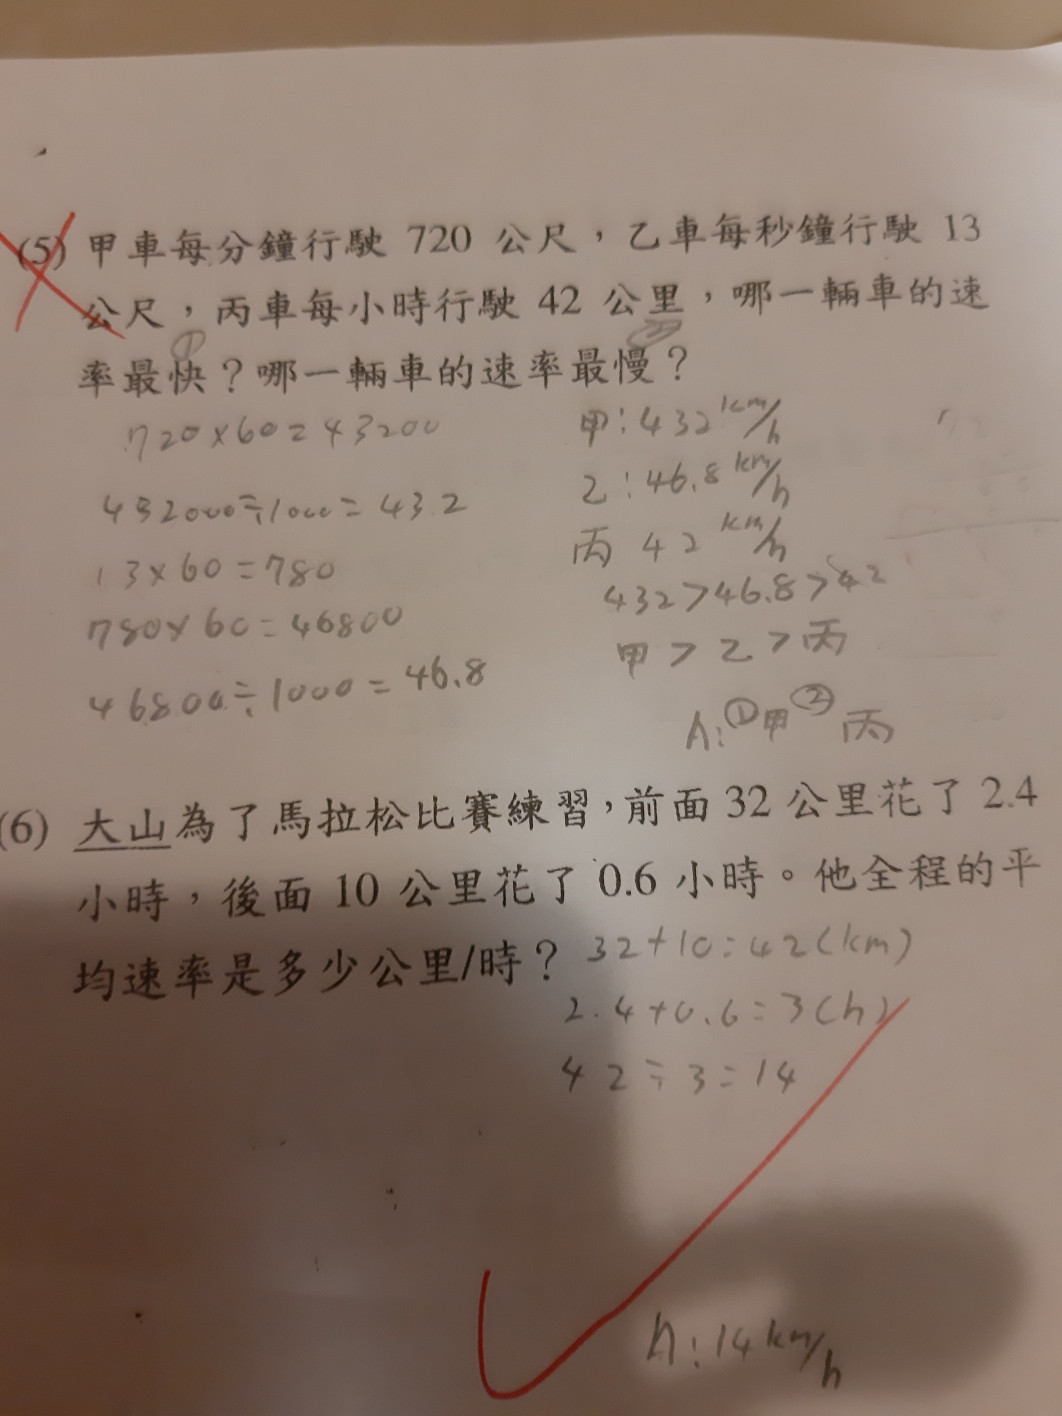 (5) 甲車每分鐘行駛 720 公尺，乙車每秒鐘行駛 13
公尺，丙車每小時行駛 42 公里，哪一輛車的速
① ②
率最快？哪一輛車的速率最慢？
720×60=43200
432000÷1000=43.2
13×60=780
780×60=46800
46800÷1000=46.8
甲:432 km/h
乙:46.8 km/h
丙 42 km/h
432>46.8>42
甲>乙>丙
A:①甲②丙
(6) 大山為了馬拉松比賽練習，前面 32 公里花了 2.4
小時，後面 10 公里花了 0.6 小時。他全程的平
均速率是多少公里/時？
32+10=42(km)
2.4+0.6=3(h)
42÷3=14
A:14km/h